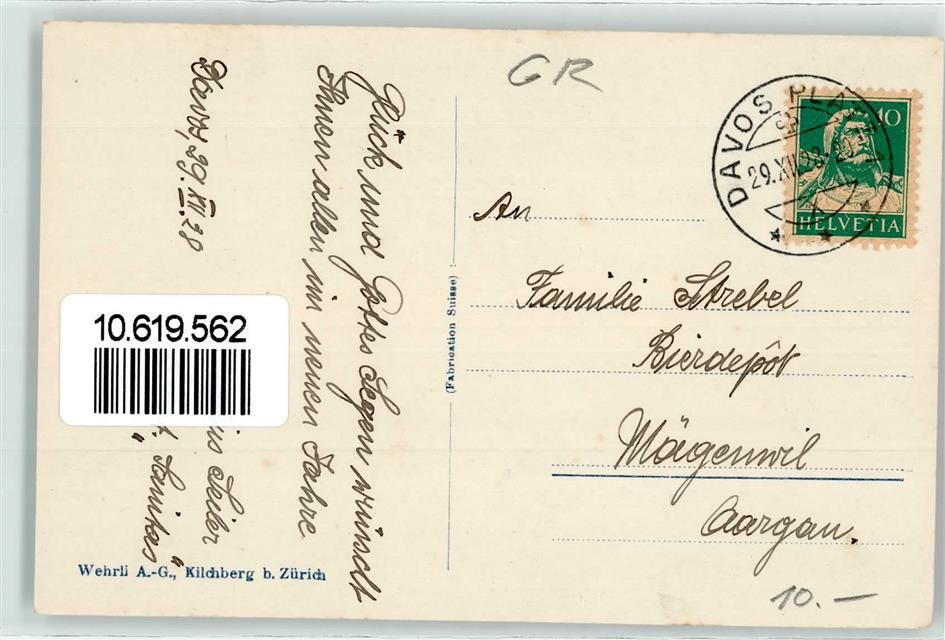 GR
DAVOS PLATZ
29.XII.28
10
HELVETIA
Davos, 29. XII. 28
Glück und Gottes Segen wünscht
Ihnen allen im neuen Jahre
Seiler
"Sanitas"
An
Familie Strebel
Bierdepôt
Mägenwil
Aargau.
(Fabrication Suisse)
10.619.562
Wehrli A.-G., Kilchberg b. Zürich
10.—